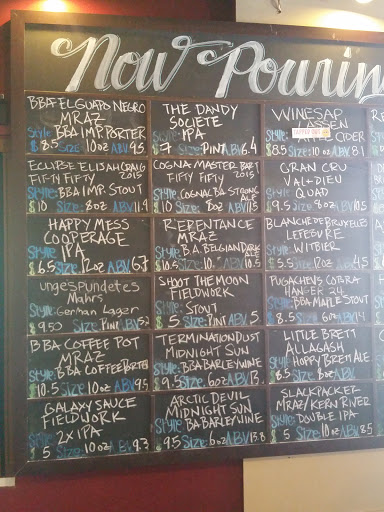 Now Pourin
BBA EL GUAPO NEGRO
MRAZ
Style: BBA IMP. PORTER
$8.5 Size: 10oz ABV: 9.5
ECLIPSE ELIJAH CRAIG
FIFTY FIFTY 2015
Style: BBA IMP. STOUT
$10 Size: 8oz ABV: 11.9
HAPPY MESS
COOPERAGE
Style: IPA
$6.5 Size: 12oz ABV: 6.7
Ungespundetes
Mahrs
Style: German Lager
$9.50 Size: Pint ABV: 5.2
BBA COFFEE POT
MRAZ
Style: BBA COFFEE PORTER
$10.5 Size: 10oz ABV: 9.5
GALAXY SAUCE
FIELDWORK
Style: 2x IPA
$5 Size: 10oz ABV: 8.3
THE DANDY
SOCIETE
Style: IPA
$7 Size: PINT ABV: 6.4
COGNAC MASTER BART
FIFTY FIFTY 2015
Style: COGNAC BA STRONG ALE
$10 Size: 8oz ABV: 11.5
REPENTANCE
MRAZ
Style: B.A. BELGIAN DARK ALE
$10.5 Size: 10oz ABV: 10.5
SHOOT THE MOON
FIELDWORK
Style: STOUT
$5 Size: PINT ABV: 5
TERMINATION DUST
MIDNIGHT SUN
Style: BBA BARLEYWINE
$9.5 Size: 6oz ABV: 13
ARCTIC DEVIL
MIDNIGHT SUN
Style: BA BARLEYWINE
$9.5 Size: 6oz ABV: 13.8
WINESAP
LASSEN
TAPPED OUT CIDER
$8.5 Size: 10oz ABV: 8.1
GRAN CRU
VAL-DIEU
Style: QUAD
$9.5 Size: 8oz ABV: 10.5
BLANCHE DE BRUXELLES
LEFEBVRE
Style: WITBIER
$5.5 Size: 12oz ABV: 4.5
PUGACHEV'S COBRA
HANGAR 24
Style: BBA MAPLE STOUT
$8.5 Size: 6oz ABV: 14
LITTLE BRETT
ALLAGASH
Style: HOPPY BRETT ALE
$ 6.5 Size:
SLACKPACKER
MRAZ/KERN RIVER
Style: DOUBLE IPA
$5 Size: ABV: 8